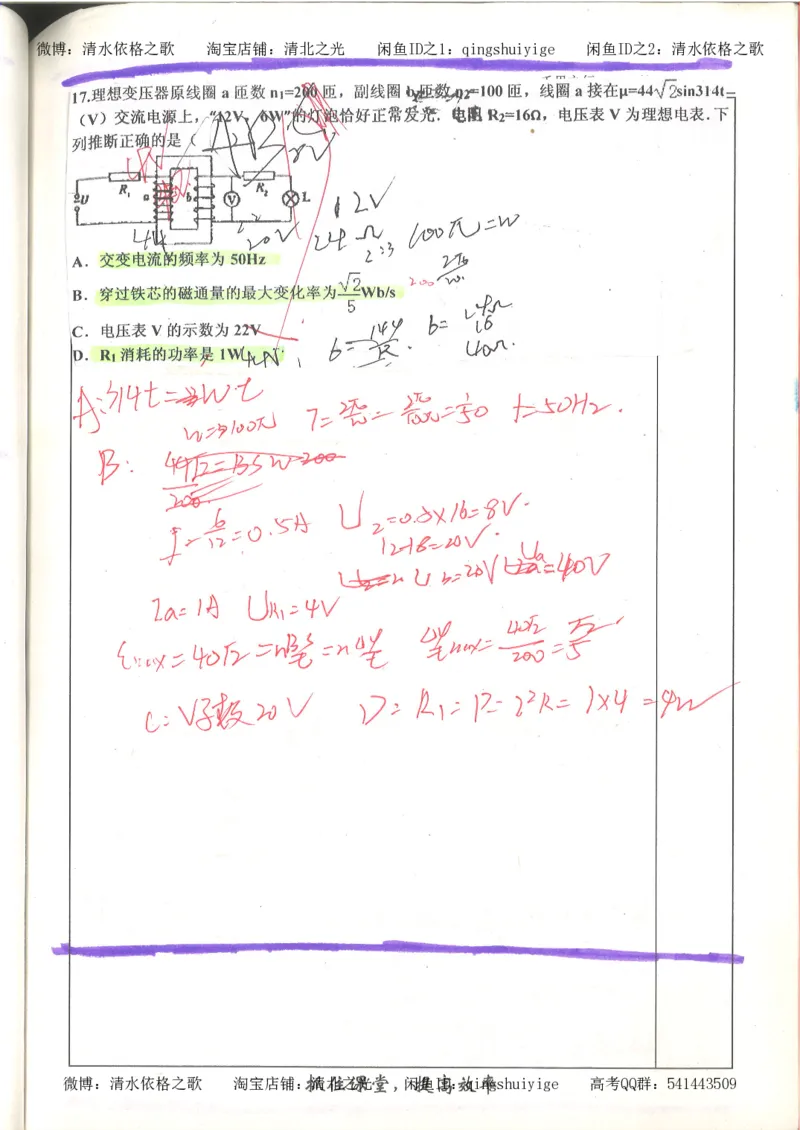 微博：清水依格之歌 淘宝店铺：清北之光 闲鱼ID之1：qingshuiyige 闲鱼ID之2：清水依格之歌
17.理想变压器原线圈 a 匝数 n1=200 匝，副线圈 b 匝数 n2=100 匝，线圈 a 接在μ=44√2sin314t
（V）交流电源上，“12V，6W”的灯泡恰好正常发光．电阻 R2=16Ω，电压表 V 为理想电表．下
列推断正确的是（
U R1 a b V R2 L
12V
4V 20V 24Ω 100π=w
2:3
A．交变电流的频率为 50Hz
200 2π
B．穿过铁芯的磁通量的最大变化率为√2/5Wb/s
C．电压表 V 的示数为 22V
6=144/R. 6=
16
40Ω.
D．R1 消耗的功率是 1W
A:314t=wt
w=100π T=2π/w=2π/100π=1/50 f=50Hz.
B: 44√2=BSw 200
200
I=6/12=0.5A U2=0.5×16=8V.
12+8=20V.
Ub=20V Ua=40V
Ia=1A UR1=4V
Emax=40√2=n =n max=40√2/200=√2/5
C:V示数20V D:R1=P=I²R=1×4=4W
微博：清水依格之歌 淘宝店铺：清北之光 闲鱼ID：qingshuiyige 高考QQ群：541443509
抓住课堂，提高效率